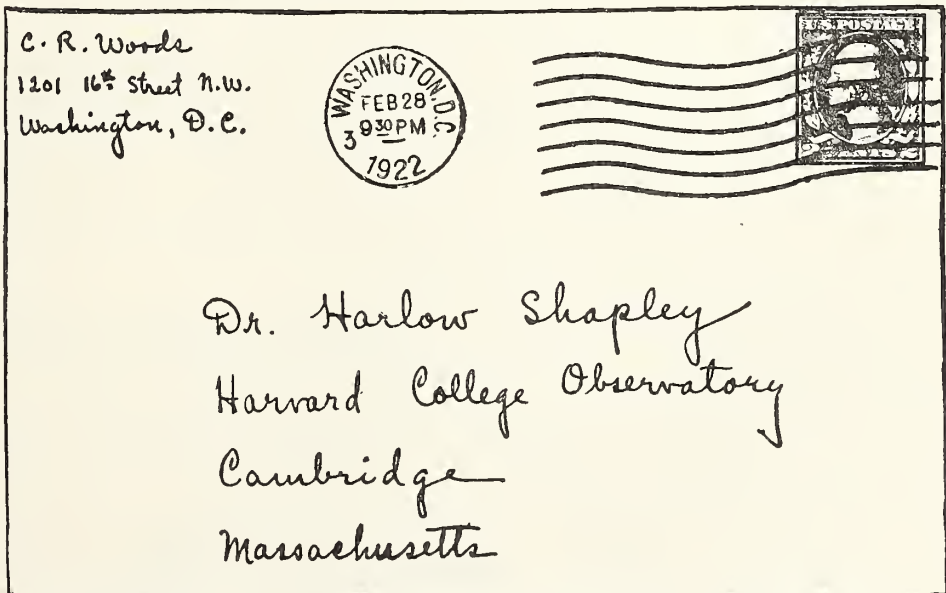 C. R. Woods
1201 16th Street N.W.
Washington, D.C.
WASHINGTON, D.C.
3
FEB 28
9 30 PM
1922
U.S. POSTAGE
Dr. Harlow Shapley
Harvard College Observatory
Cambridge
Massachusetts